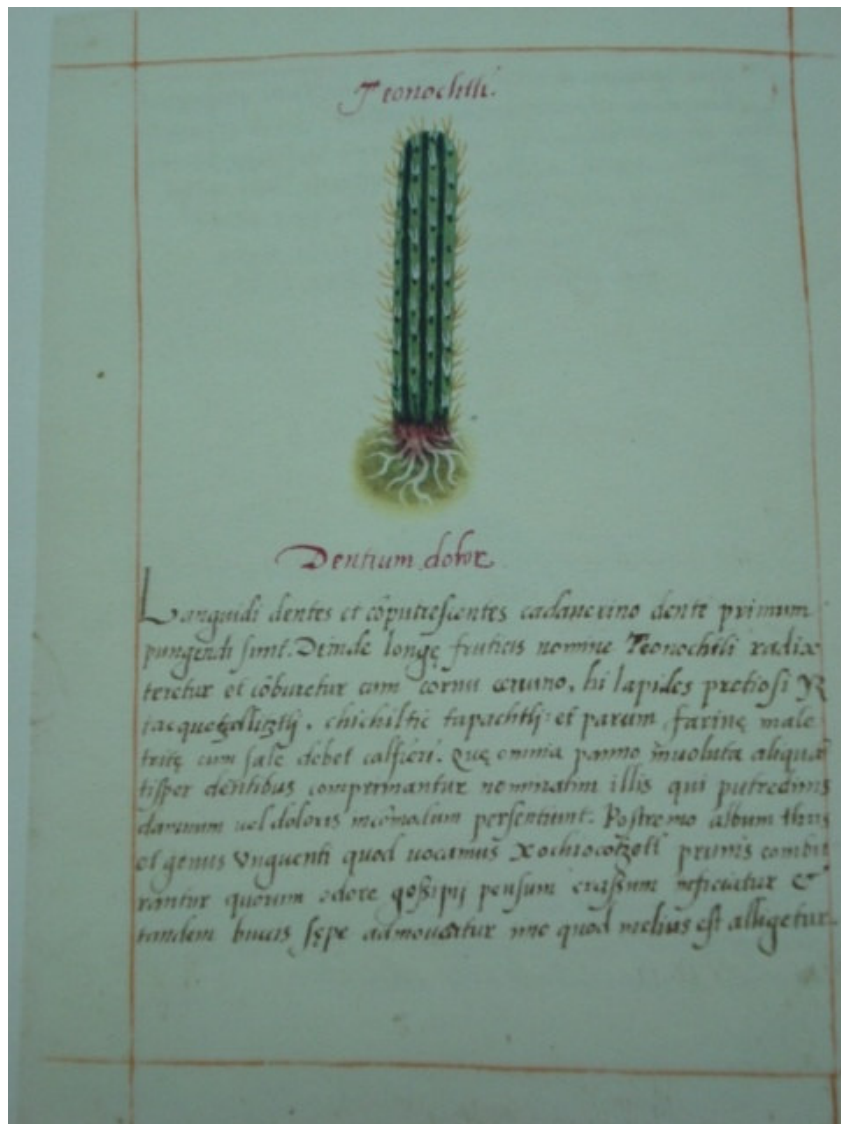 Teonochtli.
Dentium dolor
Languidi dentes et cōputrescentes cadauerino dente primum
pungendi sunt. Deinde longę fruticis nomine Teonochtli radix
teretur et cōburetur cum cornu ceruino, hi lapides pretiosi
chichiltic tapachtly: et parum farinę male
tritę cum sale debet calfieri. Quę omnia panno inuoluta aliquā
tisper dentibus comprimantur nominatim illis qui putredinis
damnum uel doloris incōmodum persentiunt. Postremo album thus
et genus Vnguenti quod uocamus Xochiocotzotl prunis combu
rantur quorum odore goßipij pensum craßum inficiatur &
tandem buccis sępe admoueatur imo quod melius est alligetur.